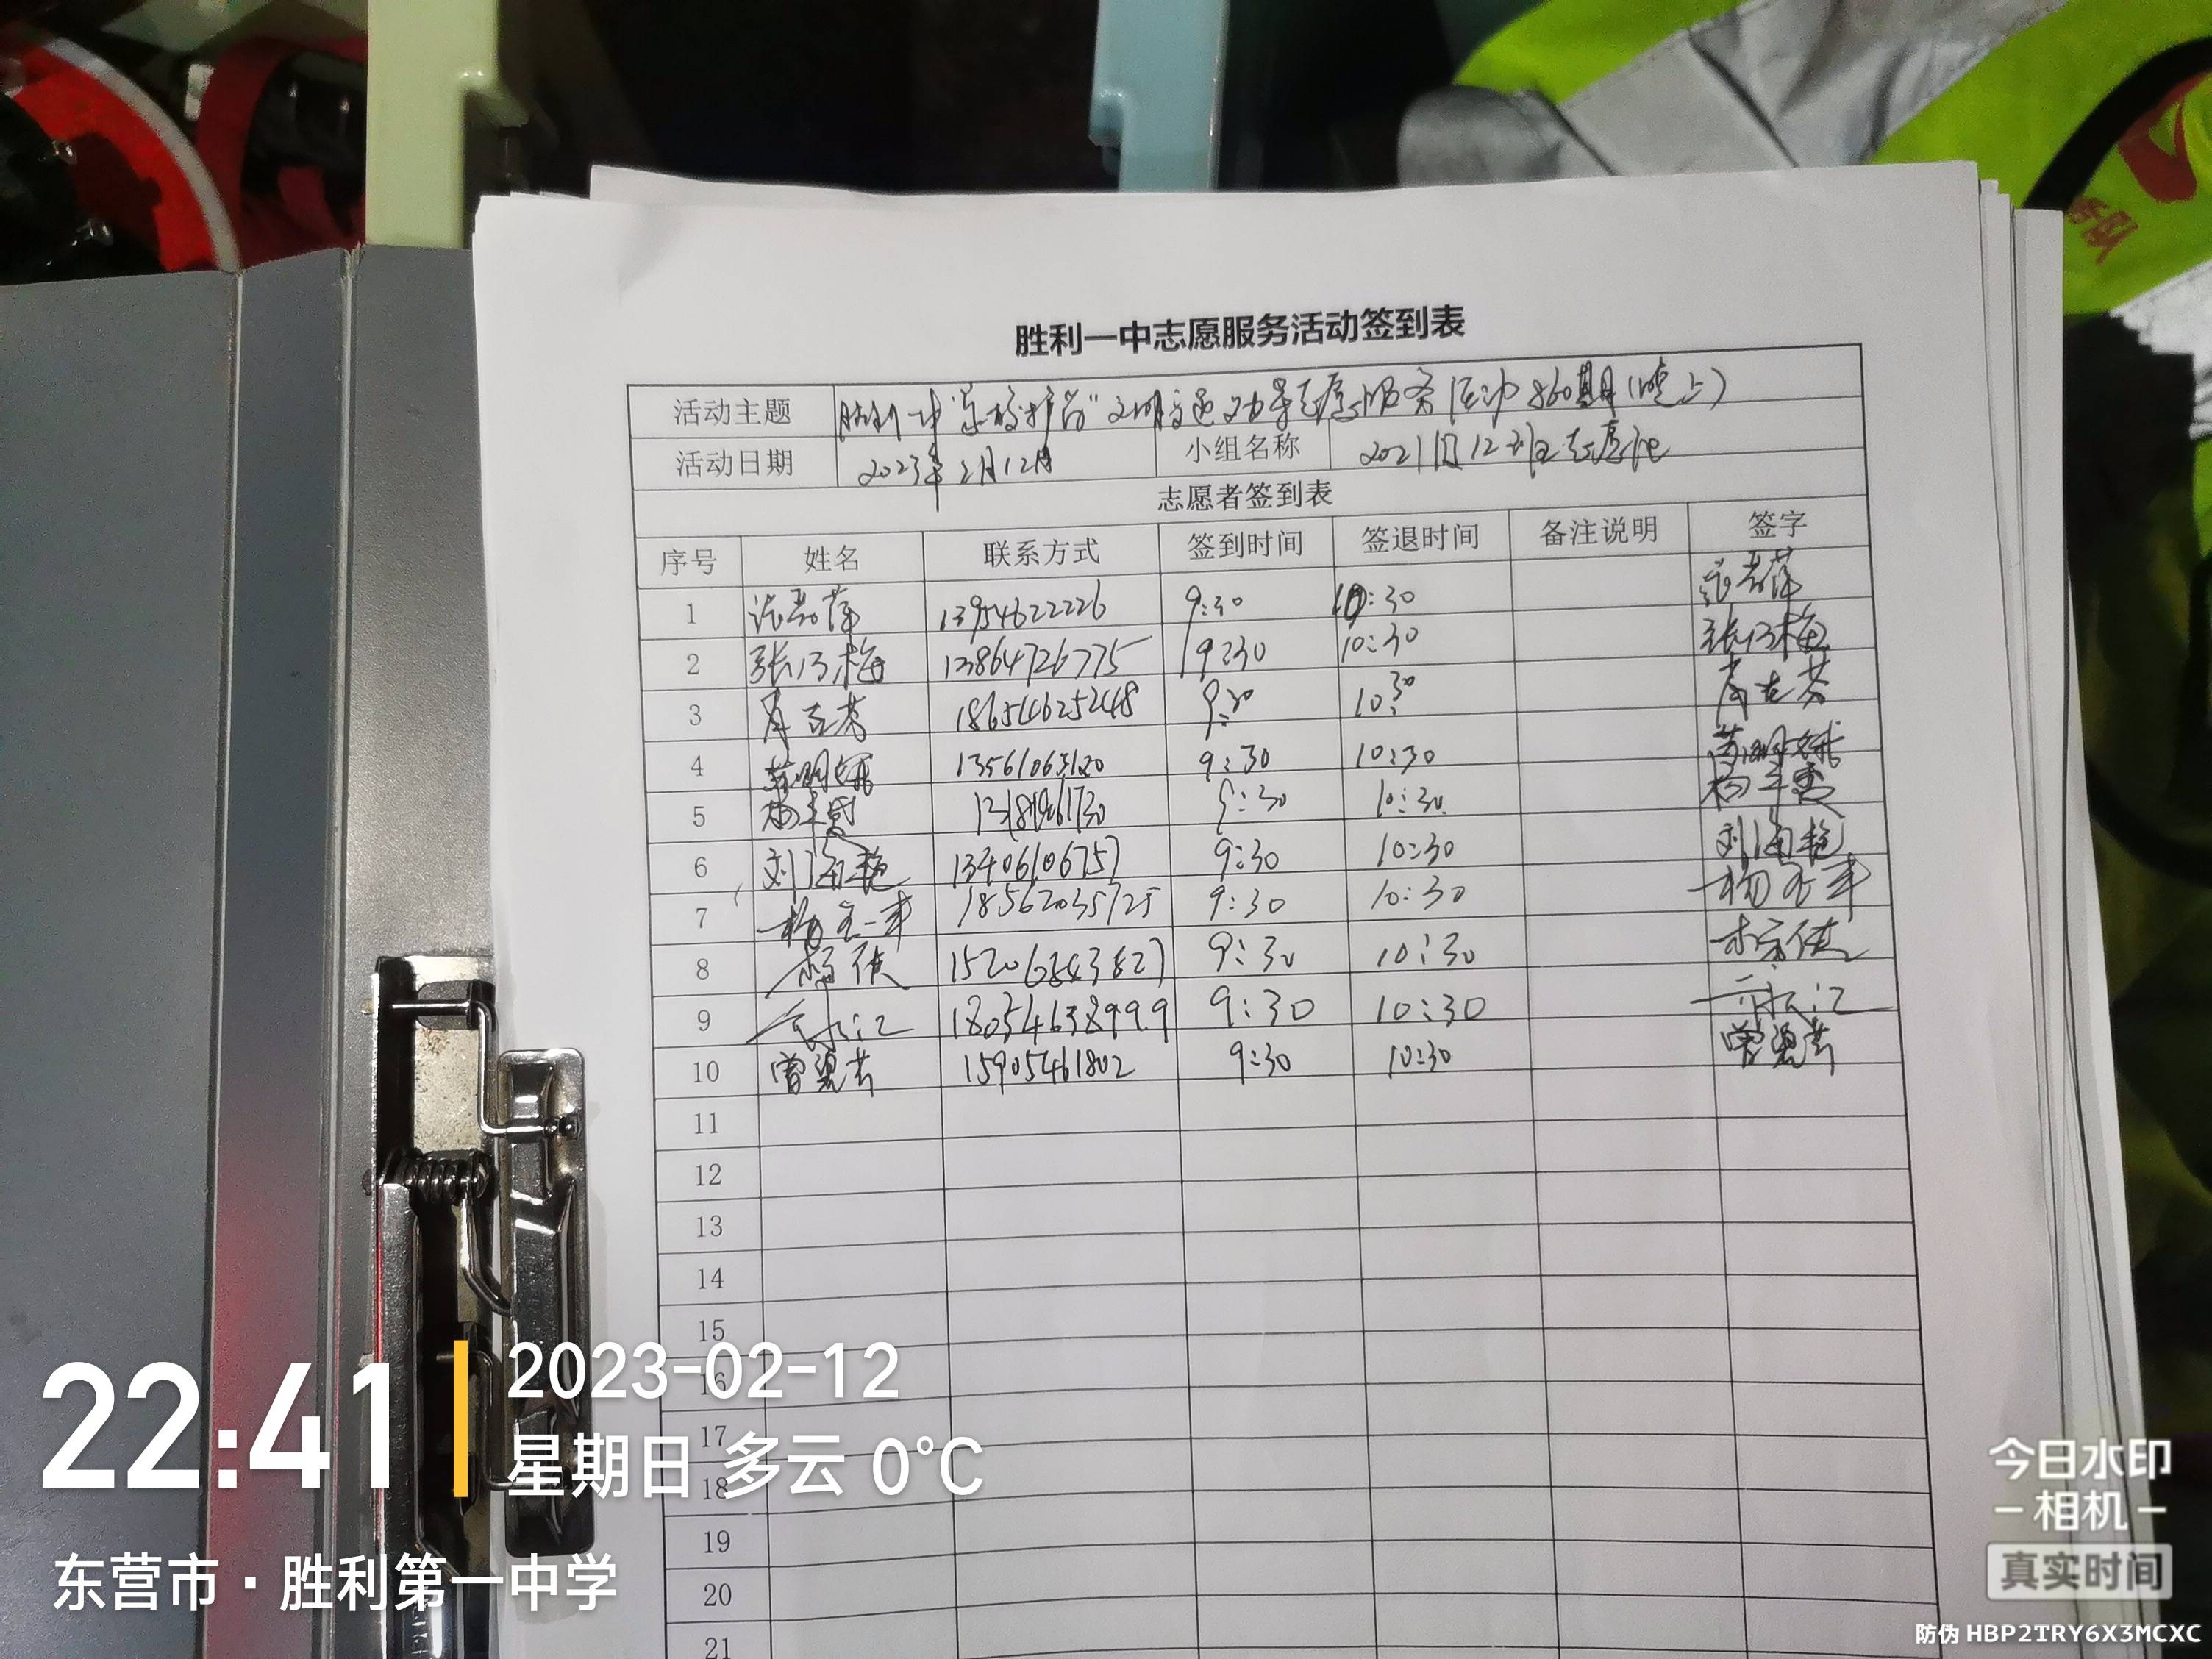 胜利一中志愿服务活动签到表
活动主题 胜利一中" 护 "文明交通 志愿服务活动860期(晚上)
活动日期 2023年2月12日 小组名称 2021 12班志愿
志愿者签到表
序号 姓名 联系方式 签到时间 签退时间 备注说明 签字
1 13954622226 9:30 10:30
2 张 梅 13864726775 9:30 10:30 张 梅
3 18654625248 9:30 10:30
4 13561063120 9:30 10:30
5 杨 9:30 10:30 杨
6 刘海艳 13406106757 9:30 10:30 刘海艳
7 杨 18562035725 9:30 10:30 杨
8 9:30 10:30
9 18054638999 9:30 10:30
10 曾 15905461802 9:30 10:30 曾
11
12
13
14
15
16
17
18
19
20
21
22:41
2023-02-12
星期日 多云 0°C
东营市·胜利第一中学
今日水印
-相机-
真实时间
防伪 HBP2TRY6X3MCXC